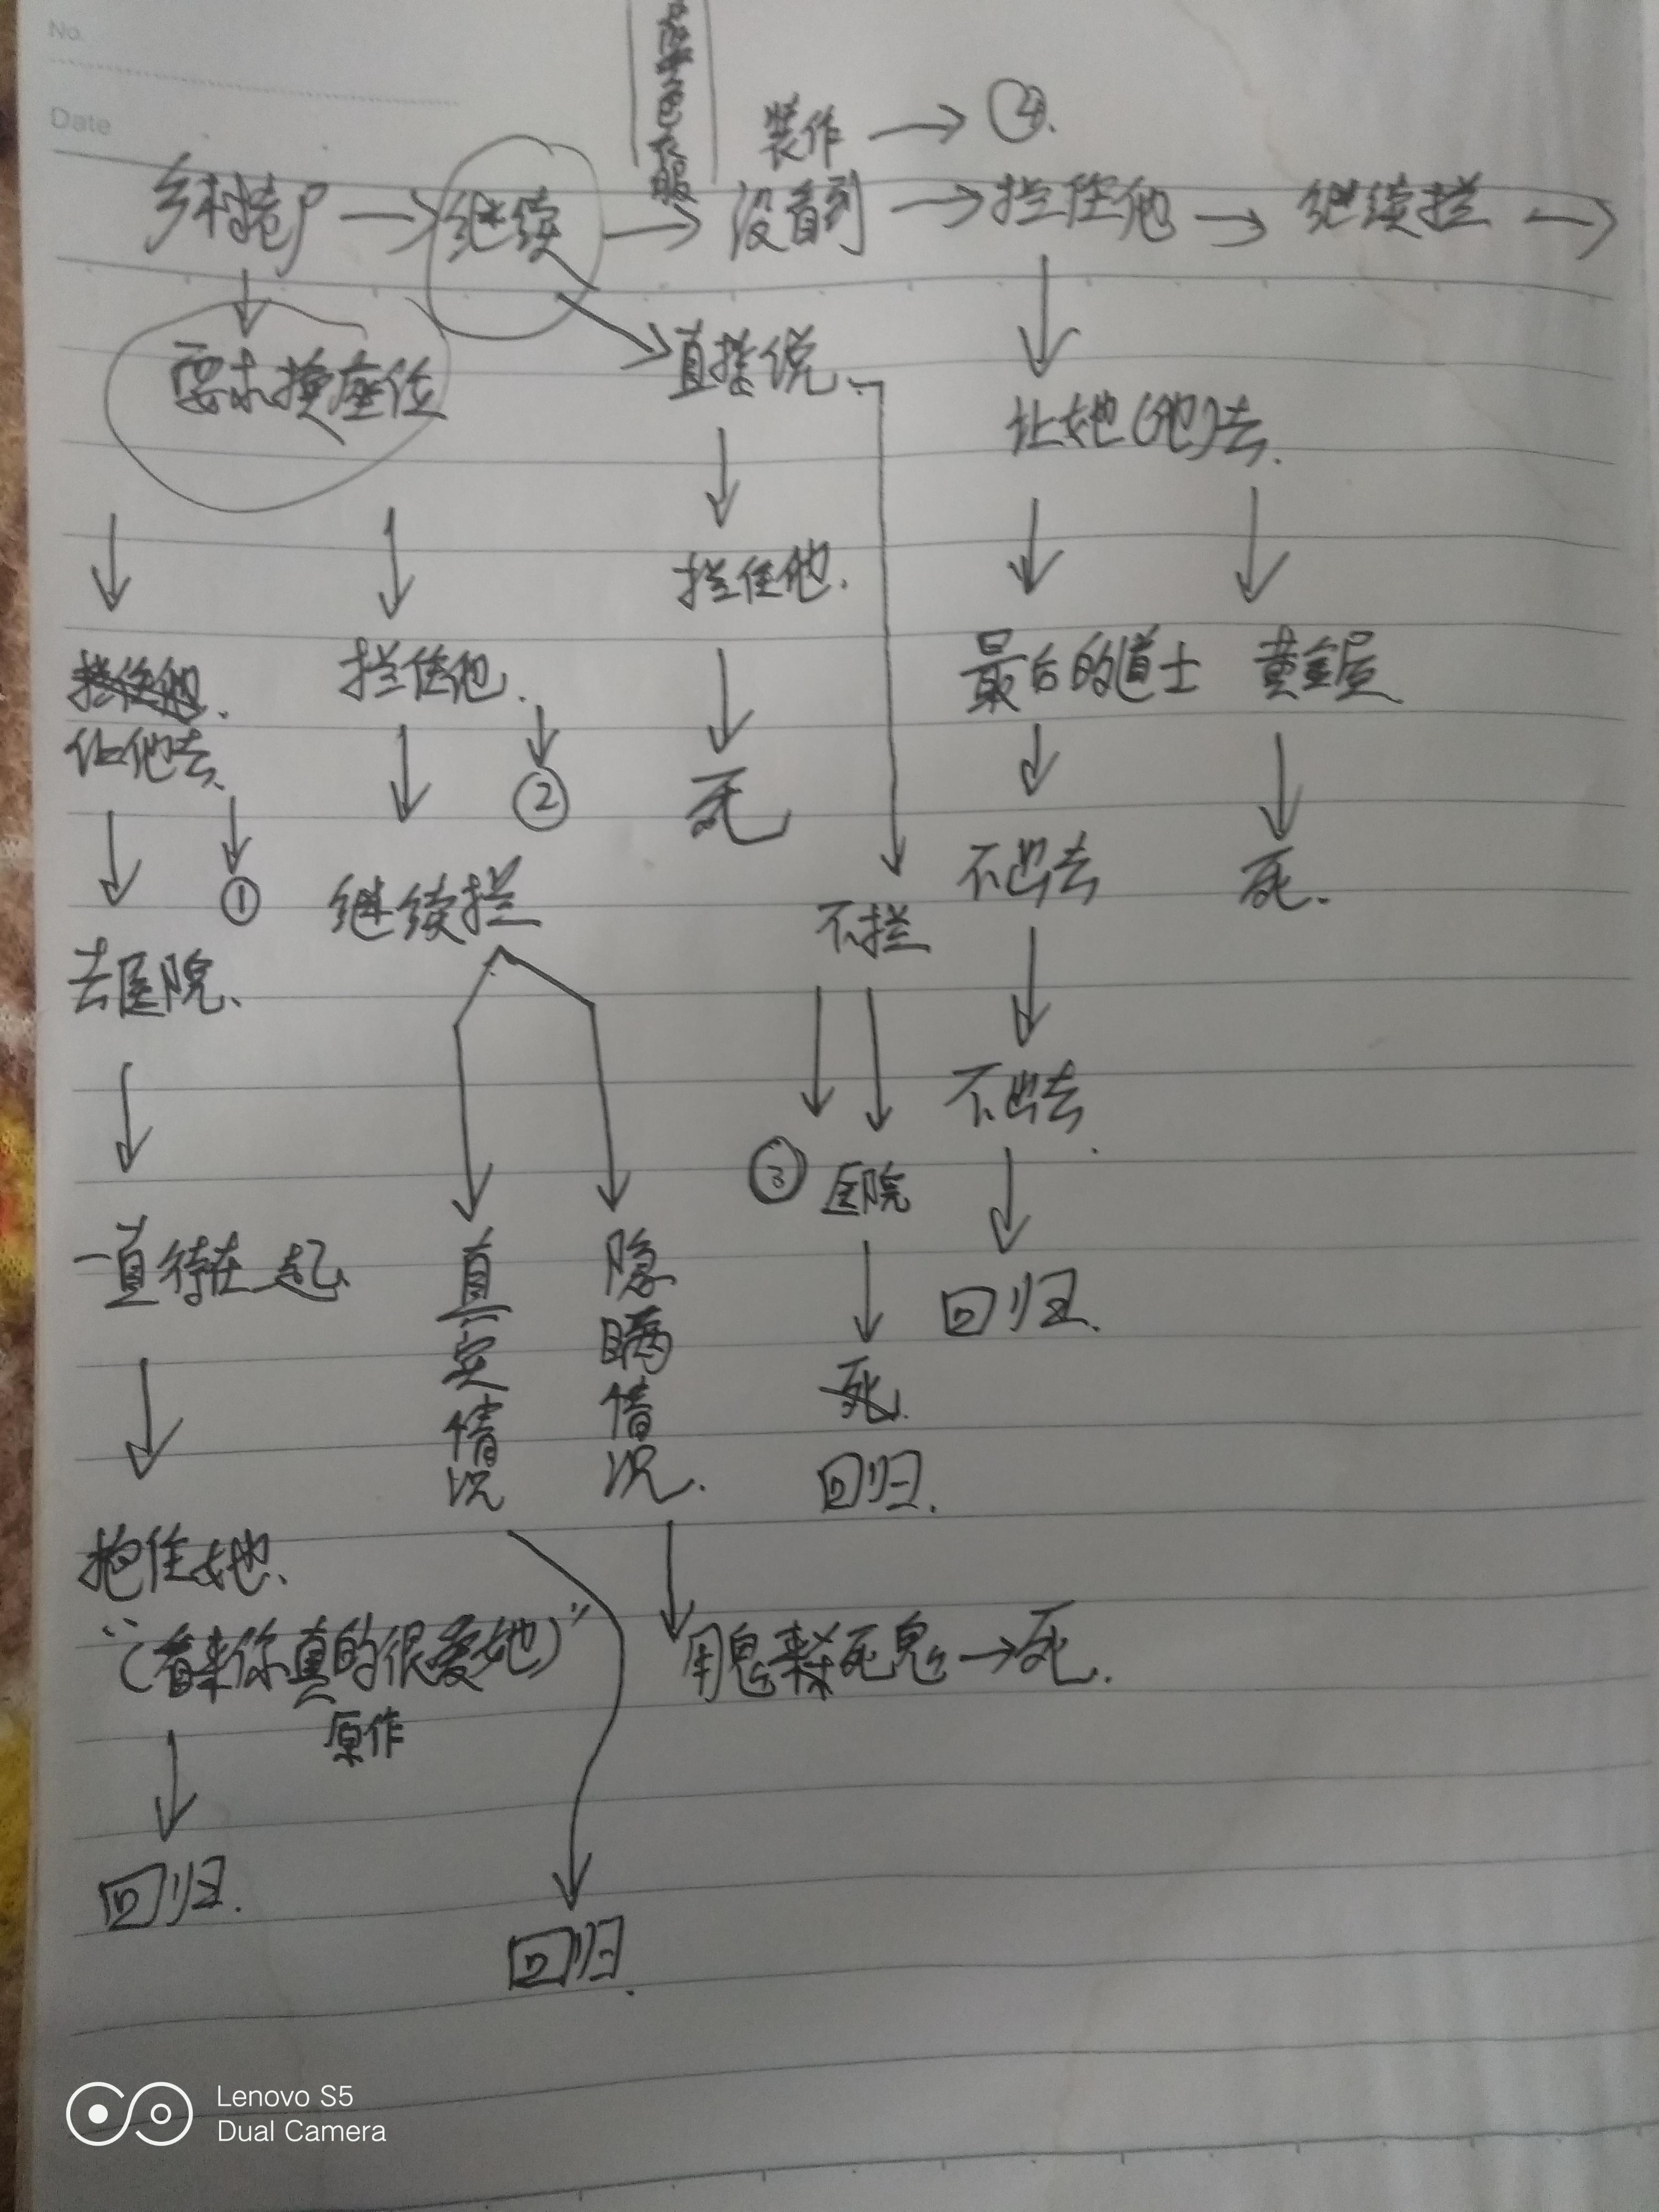 No.
Date
色衣服
装作 → ④.
→ 继续 → 没看到 → 拦住他 → 继续拦 →
要求换座位
直接说.
让她(他)去.
拦住他.
拦住他.
最后的道士 黄金屋
让他去.
②
死
①
继续拦
不拦
不出去
死.
去医院.
不出去.
③ 医院
一直待在一起.
真实情况
隐瞒情况.
回归.
死.
回归.
抱住她.
“(看来你真的很爱她)”
原作
用鬼来杀死鬼 → 死.
回归.
回归.
Lenovo S5
Dual Camera